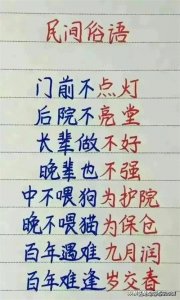 民间俗语
门前不点灯
后院不亮堂
长辈做不好
晚辈也不强
中不喂狗为护院
晚不喂猫为保仓
百年遇难九月润
百年难逢岁交春